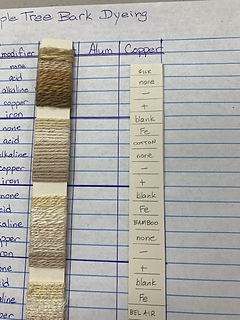 ple Tree Bark Dyeing
modifier Alum Copper
none
acid
alkaline
copper
iron
none
acid
alkaline
copper
iron
none
cid
aline
pper
on
ne
cid
line
per
SILK
none
—
+
blank
Fe
COTTON
none
—
+
blank
Fe
BAMBOO
none
—
+
blank
Fe
BEL AIR